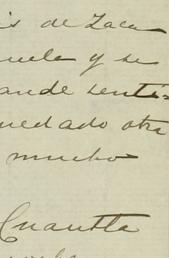 is de Zaca
uela y se
ande senti=
uedado otra
mucho
Cuautla